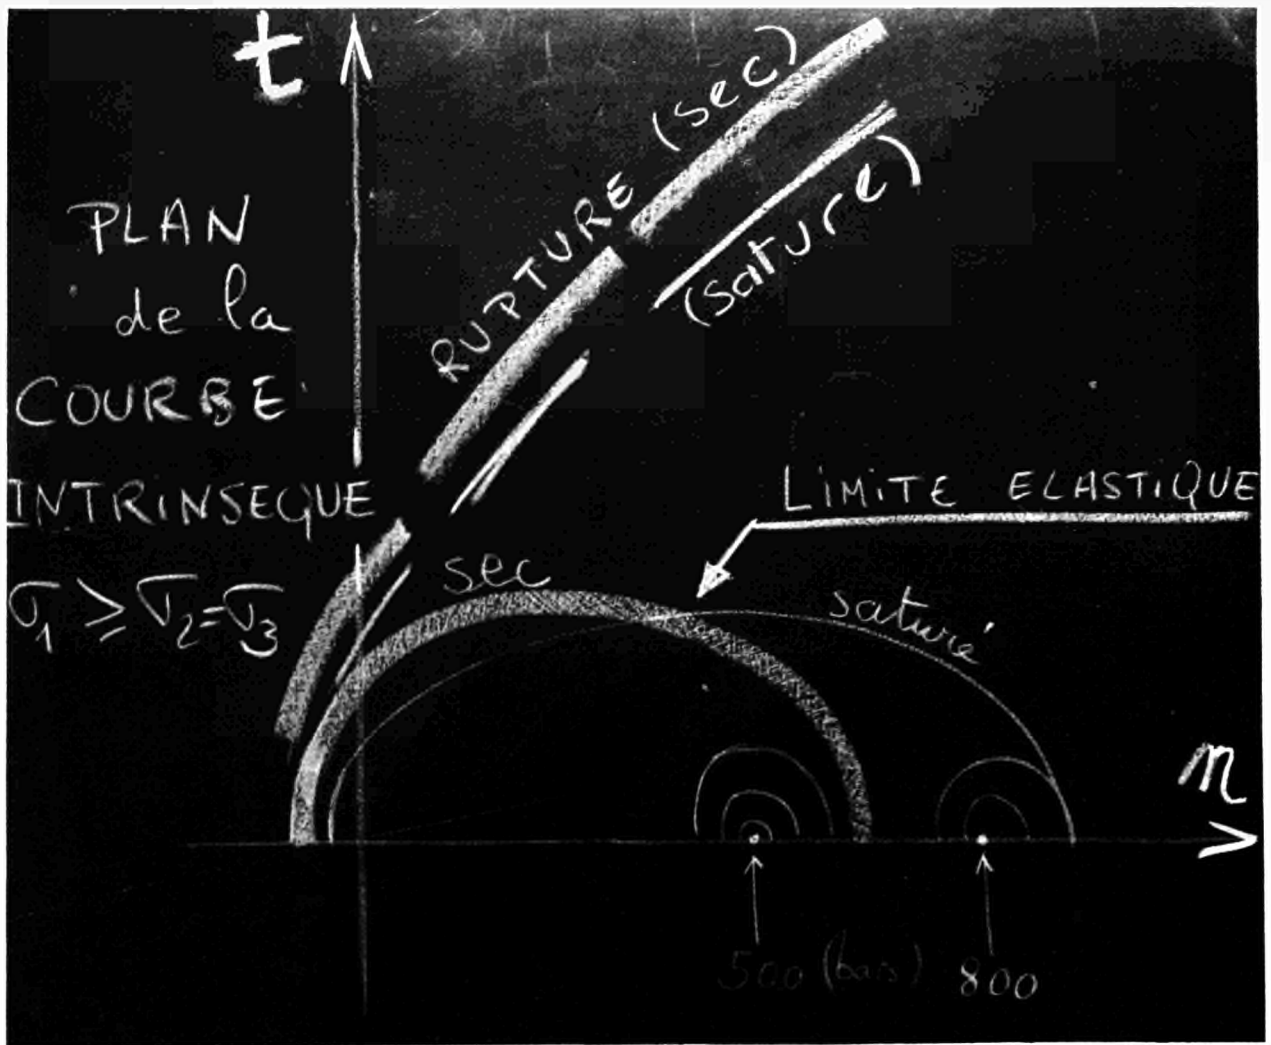 t
PLAN
de la
COURBE
INTRINSEQUE
σ₁ ≥ σ₂=σ₃
RUPTURE (sec)
(saturé)
LIMITE ELASTIQUE
sec
saturé
n
500 (bars) 800